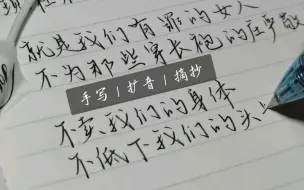 就是我们有罪的女人
不为那些穿长袍的
手写 | 扩音 | 摘抄
不卖我们的身体
不低下我们的头